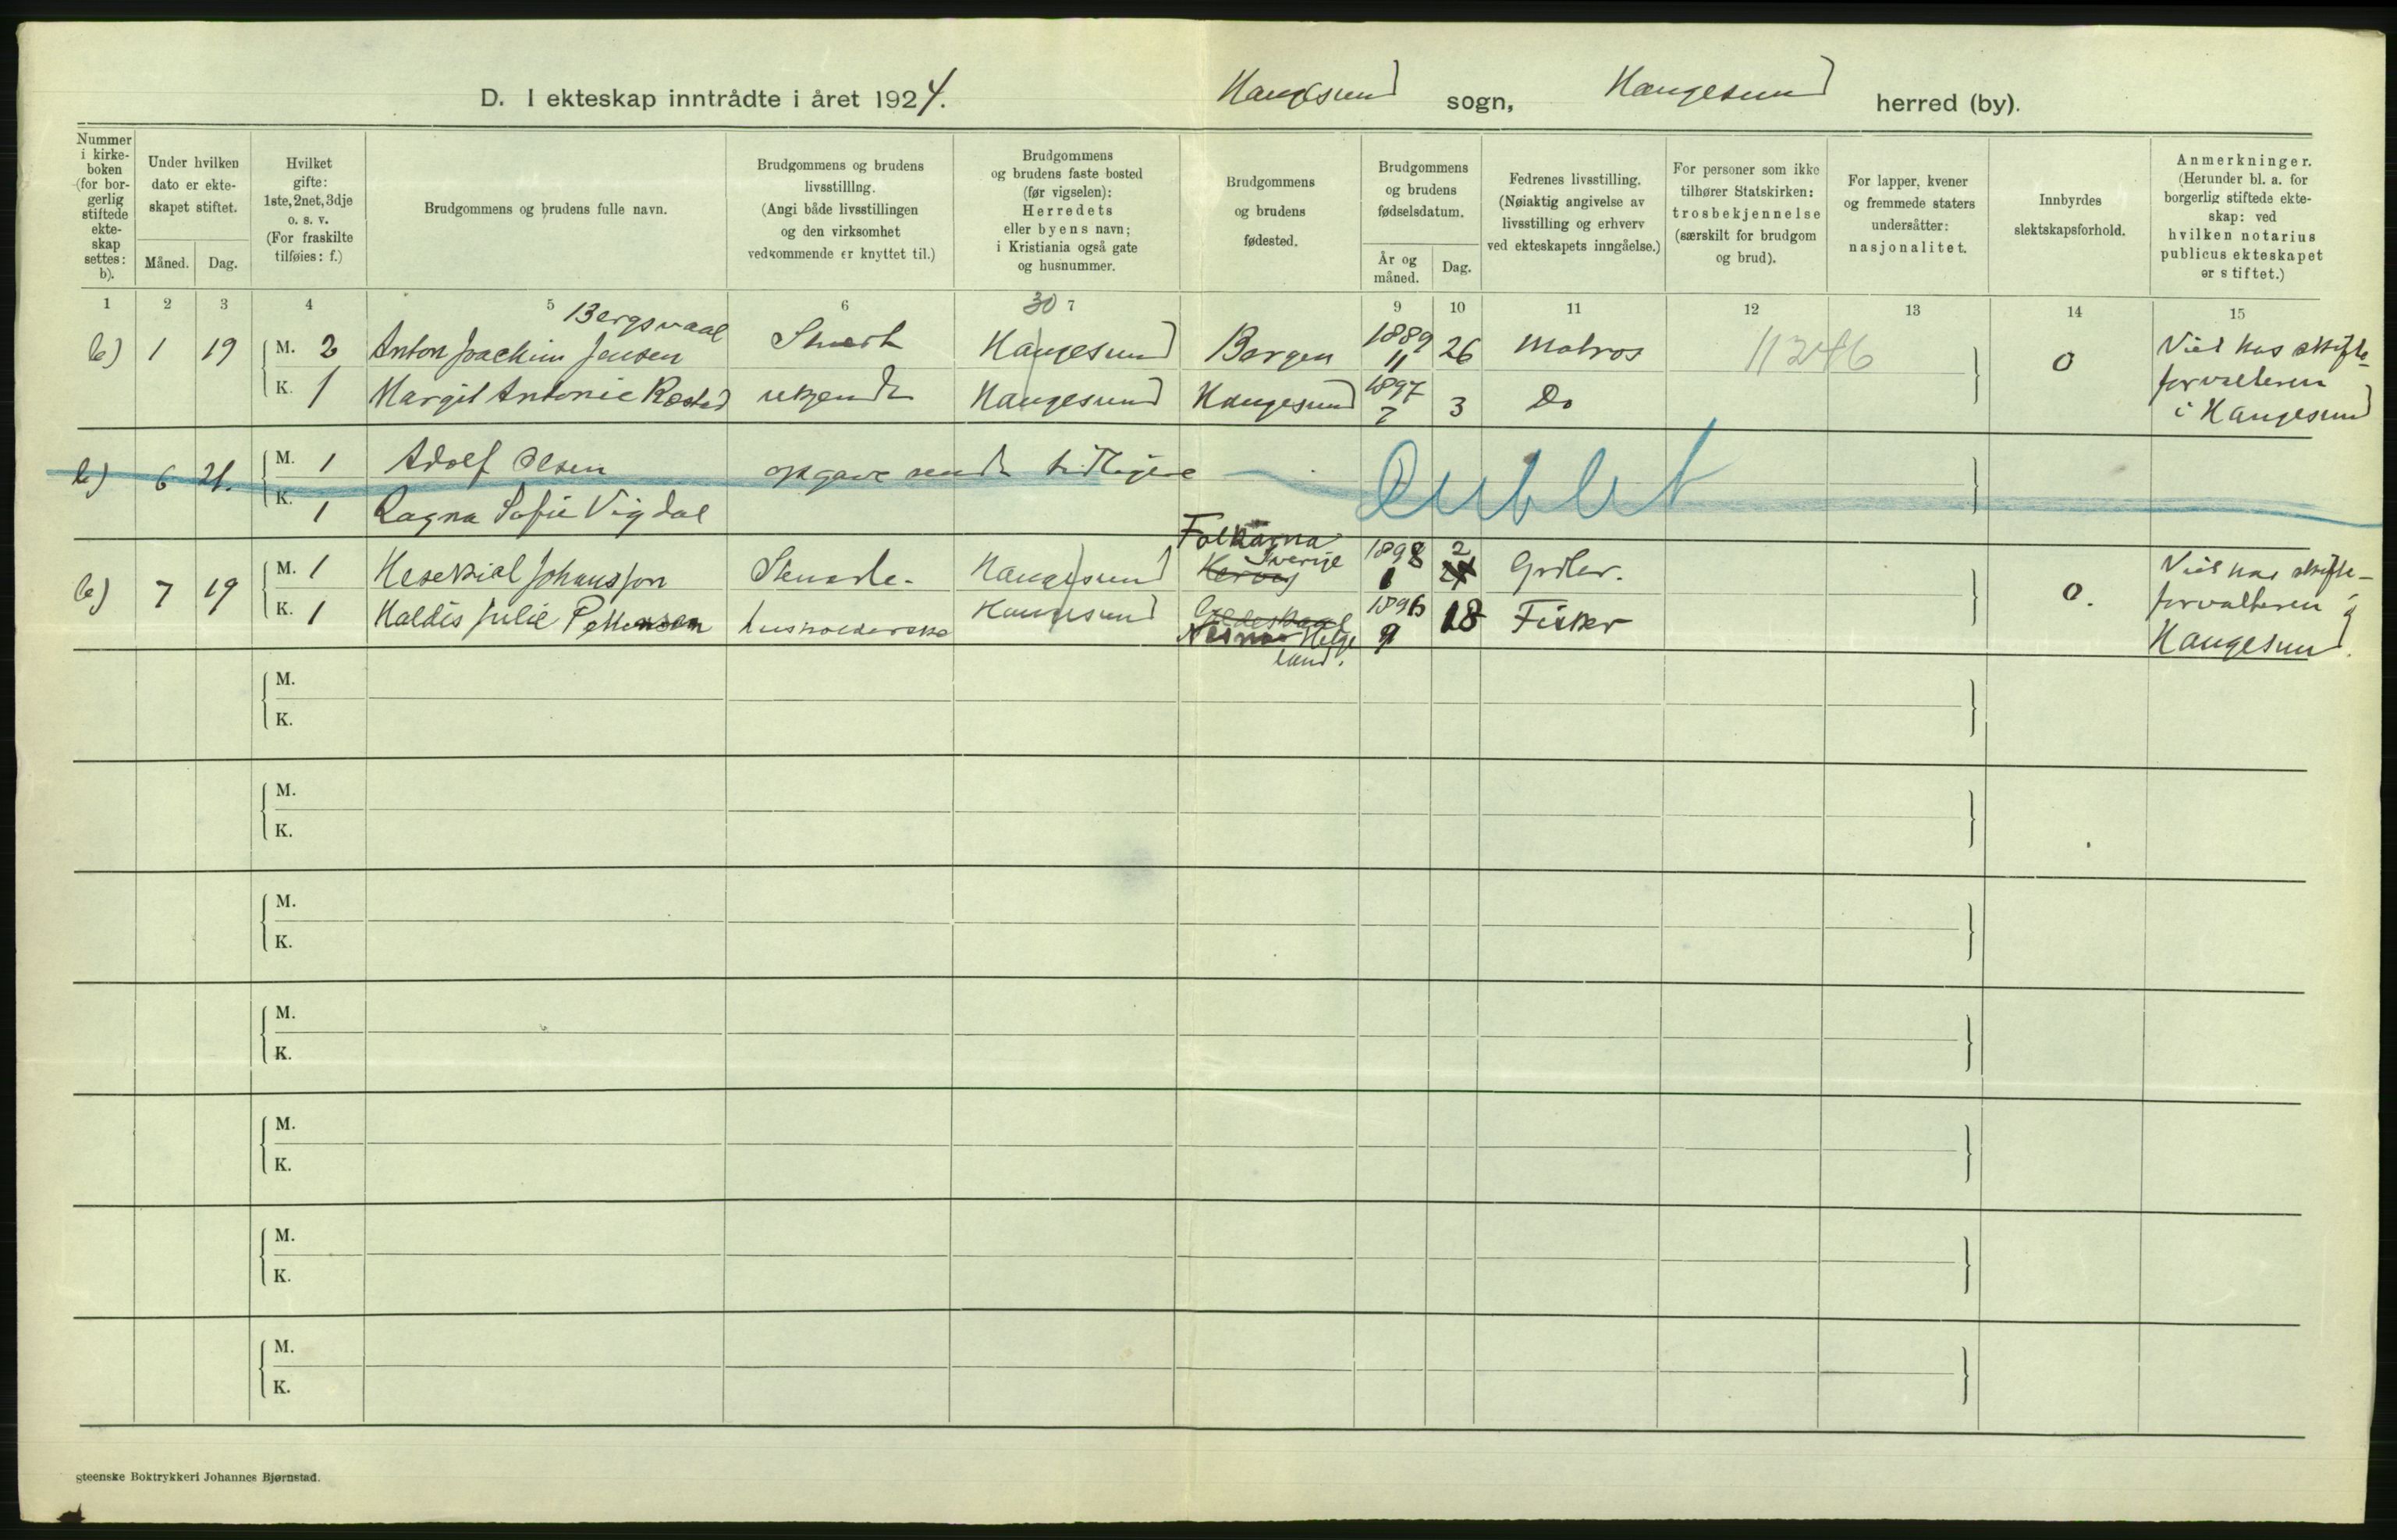 D. I ekteskap inntrådte i året 1924. Haugesund sogn, Haugesund herred (by).
Nummer i kirke-boken (for bor-gerlig stiftede ekte-skap settes: b).
Under hvilken dato er ekte-skapet stiftet.
Måned. Dag.
Hvilket gifte: 1ste, 2net, 3dje o. s. v. (For fraskilte tilføies: f.)
Brudgommens og brudens fulle navn.
Brudgommens og brudens livsstilllng. (Angi både livsstillingen og den virksomhet vedkommende er knyttet til.)
Brudgommens og brudens faste bosted (før vigselen): Herredets eller byens navn; i Kristiania også gate og husnummer.
Brudgommens og brudens fødested.
Brudgommens og brudens fødselsdatum.
År og måned. Dag.
Fedrenes livsstilling. (Nøiaktig angivelse av livsstilling og erhverv ved ekteskapets inngåelse.)
For personer som ikke tilhører Statskirken: trosbekjennelse (særskilt for brudgom og brud).
For lapper, kvener og fremmede staters undersåtter: nasjonalitet.
Innbyrdes slektskapsforhold.
Anmerkninger. (Herunder bl. a. for borgerlig stiftede ekte-skap: ved hvilken notarius publicus ekteskapet er stiftet.)
1 2 3 4 5 6 7 9 10 11 12 13 14 15
30
Bergsvaal
b) 1 19 M. 2 Anton Joachim Jensen Haugesund Bergen 1889 11 26 Matros 0 Viet hos skifte-
K. 1 Margit Antonie Røsted ukjendt Haugesund Haugesund 1897 7 3 Do forvalteren
i Haugesund
b) 6 21. M. 1 Adolf Olsen opgave sendt tidligere Dublet
K. 1 Ragna Sofie Vigdal
Folkärna
Sverige
b) 7 19 M. 1 Hesekial Johansson Stuerte. Haugesund 1898 1 2 0. Viet hos skifte-
K. 1 Haldis Julie Pettersen husholderske Haugesund 1896 9 18 Fisker forvalteren i
Nesna Helge
land. Haugesund.
M.
K.
M.
K.
M.
K.
M.
K.
M.
K.
M.
K.
M.
K.
steenske Boktrykkeri Johannes Bjørnstad.